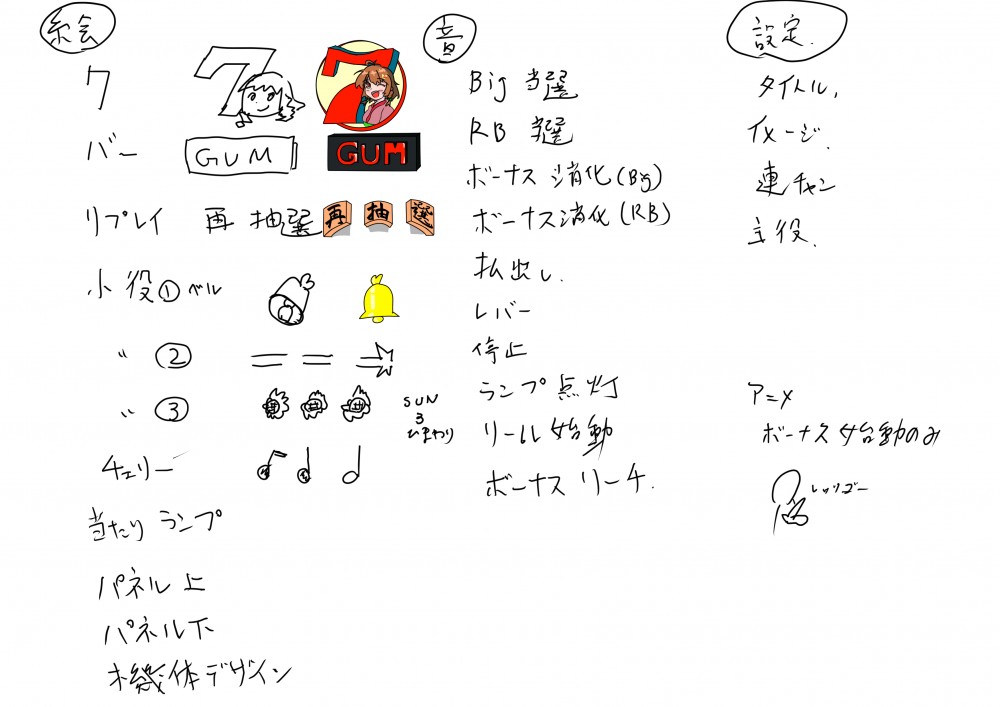 絵
7
7
7
バー
GUM
GUM
リプレイ 再 抽選
再 抽 選
小役① ベル
〃 ②
〃 ③
SUN
3
ひまわり
チェリー
当たり ランプ
パネル 上
パネル下
機体デザイン
音
Big 当選
RB 当選
ボーナス 消化(Big)
ボーナス消化(RB)
払出し.
レバー
停止
ランプ 点灯
リール始動
ボーナス リーチ.
設定.
タイトル.
イメージ.
連チャン
主役.
アニメ
ボーナス始動のみ
レッツゴー